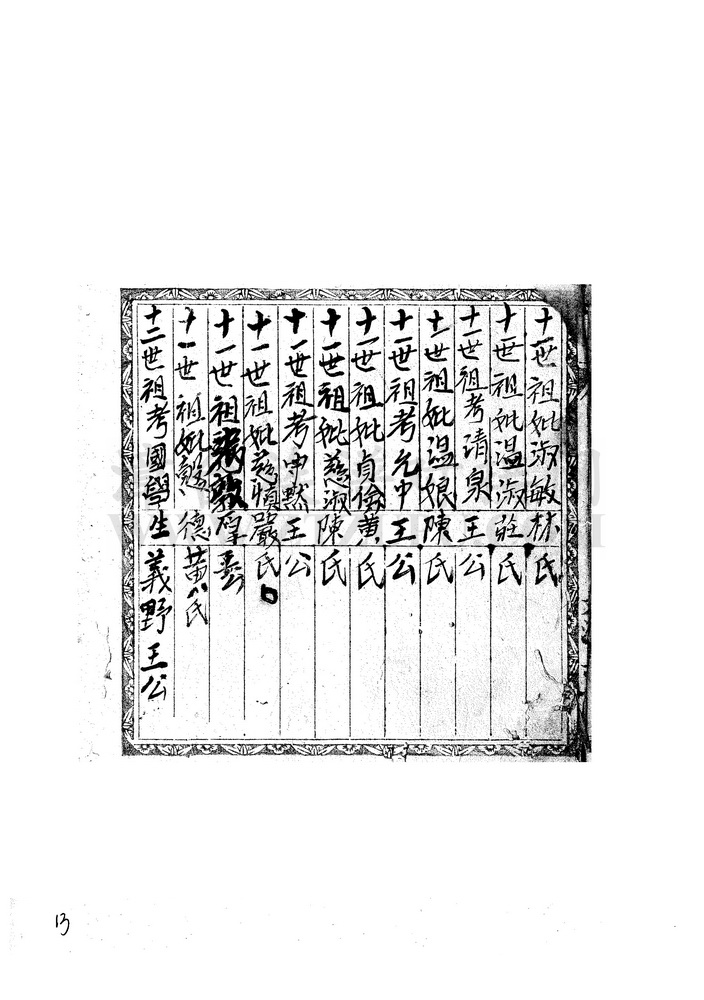 十一世祖妣淑敏林氏
十一世祖妣温淑莊氏
十一世祖考清泉王公
十一世祖妣温娘陳氏
十一世祖考允中王公
十一世祖妣貞儉黄氏
十一世祖妣慈淑陳氏
十一世祖考守默王公
十一世祖妣慈慎嚴氏
十一世祖敦厚公
十一世祖妣懿德黄氏
十二世祖考國學生義野王公
13